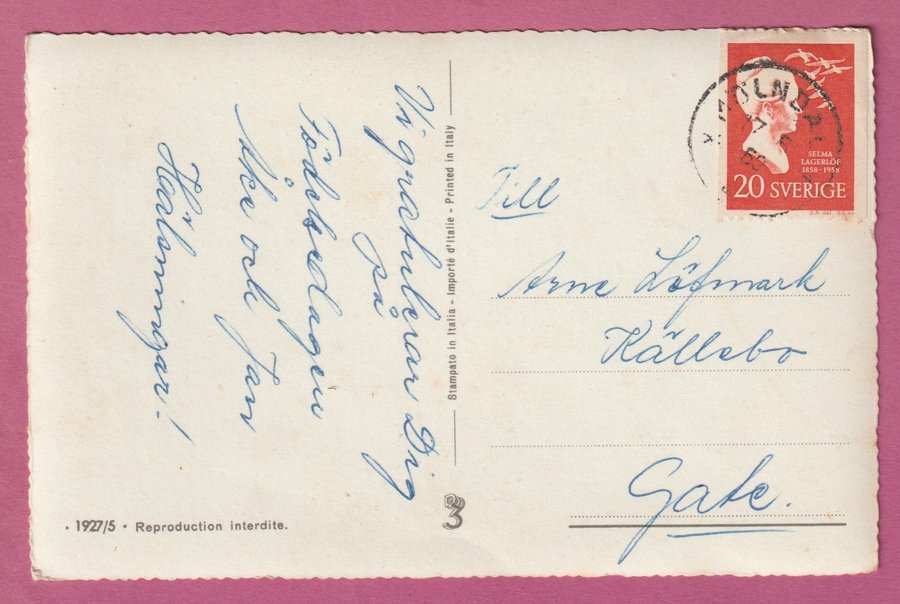 Vi gratulerar Dig
på
Födelsedagen
Åke och Jan
Hälsningar!
Stampato in Italia - Importé d'Italie - Printed in Italy
• 1927/5 • Reproduction interdite.
3
MÖLNDAL
SELMA
LAGERLÖF
1858-1958
20 SVERIGE
Till
Arne Löfmark
Källebo
Gate.